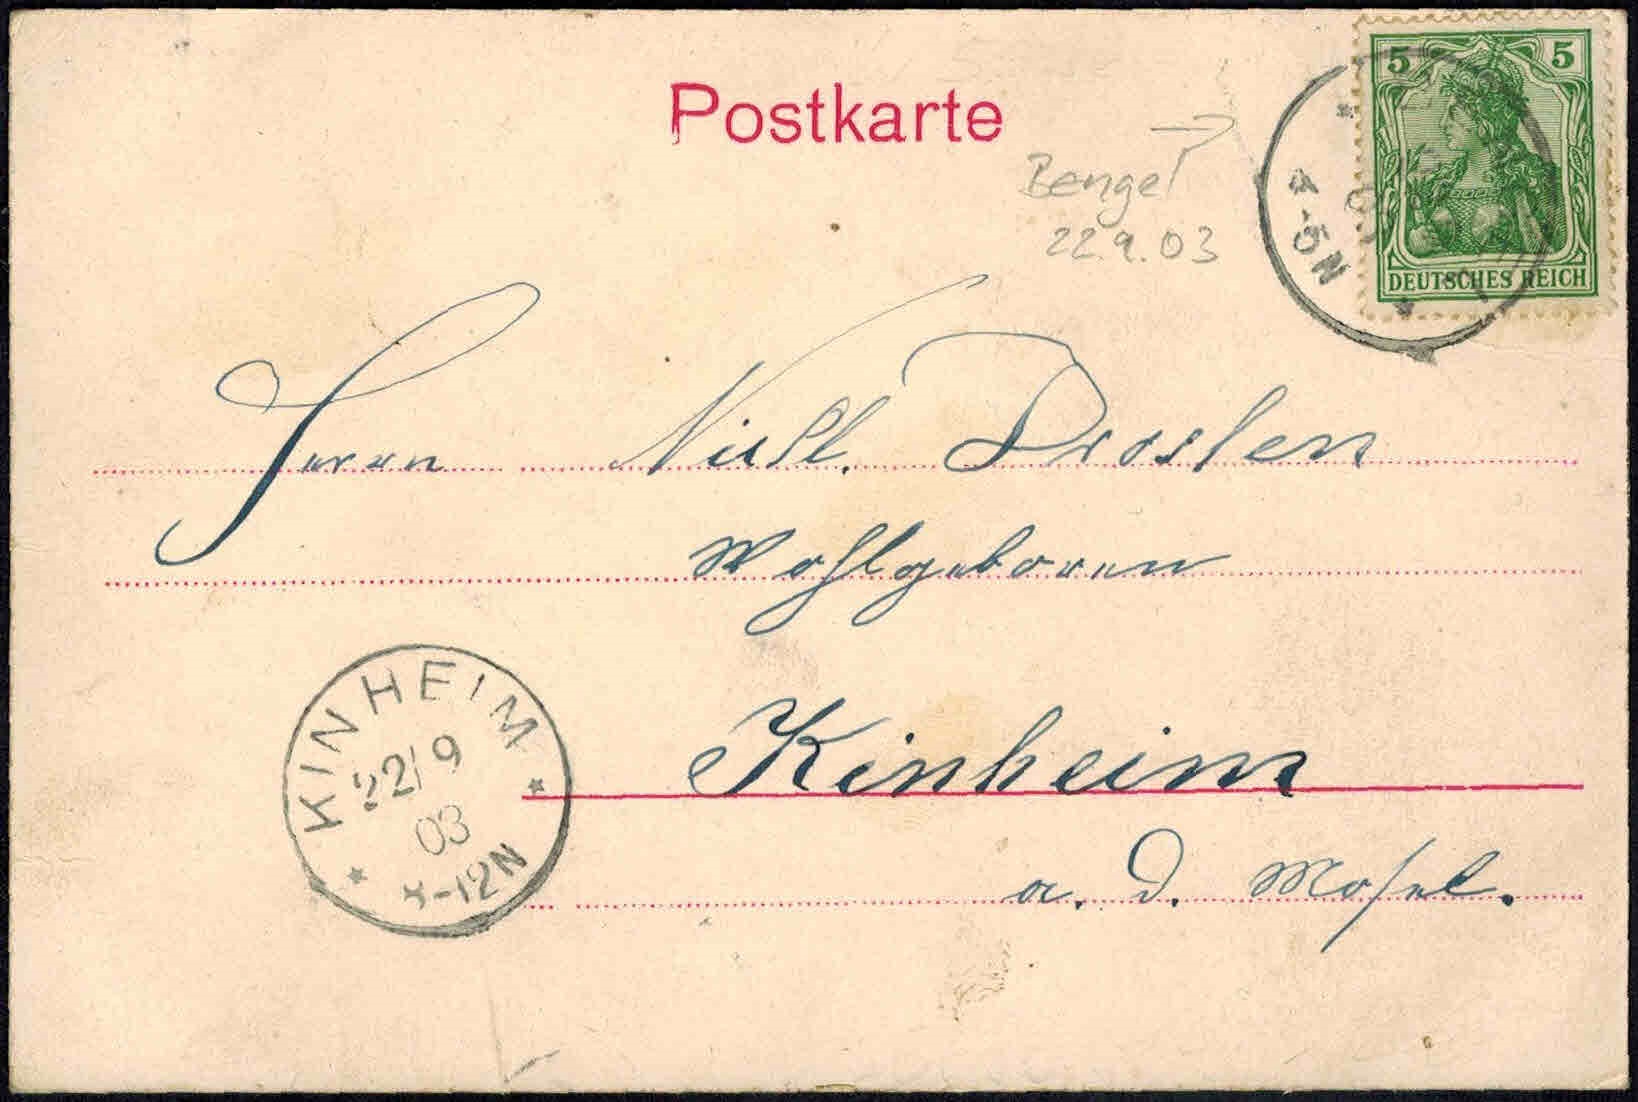 Postkarte
5 5
DEUTSCHES REICH
4-5N
Bengel
22.9.03
Herrn Drosten
Wohlgeboren
Kinheim
a. d. Mosel.
KINHEIM
22/9
03
-12N